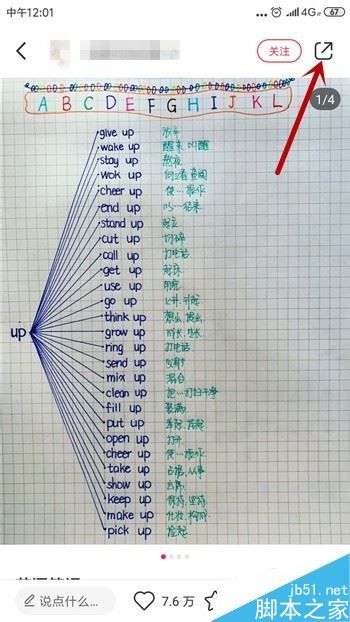 中午12:01
4G 67
关注
A B C D E F G H I J K L
1/4
up
give up 放弃
wake up 醒来 叫醒
stay up 熬夜
wok up
cheer up 使…振作
end up 以…结束
stand up 起立
cut up 切碎
call up 打电话
get up 起床
use up 用完
go up 上升, 升起
think up 想出, 提出
grow up 成长, 生长
ring up 打电话
send up 发射
mix up 混合
clean up 把…打扫干净
fill up 装满
put up
open up 打开
cheer up 使…振作
take up 占据, 从事
show up 出席
keep up 保持, 坚持
make up 化妆, 构成
pick up 捡起
说点什么...
7.6 万
jb51.net
脚本之家